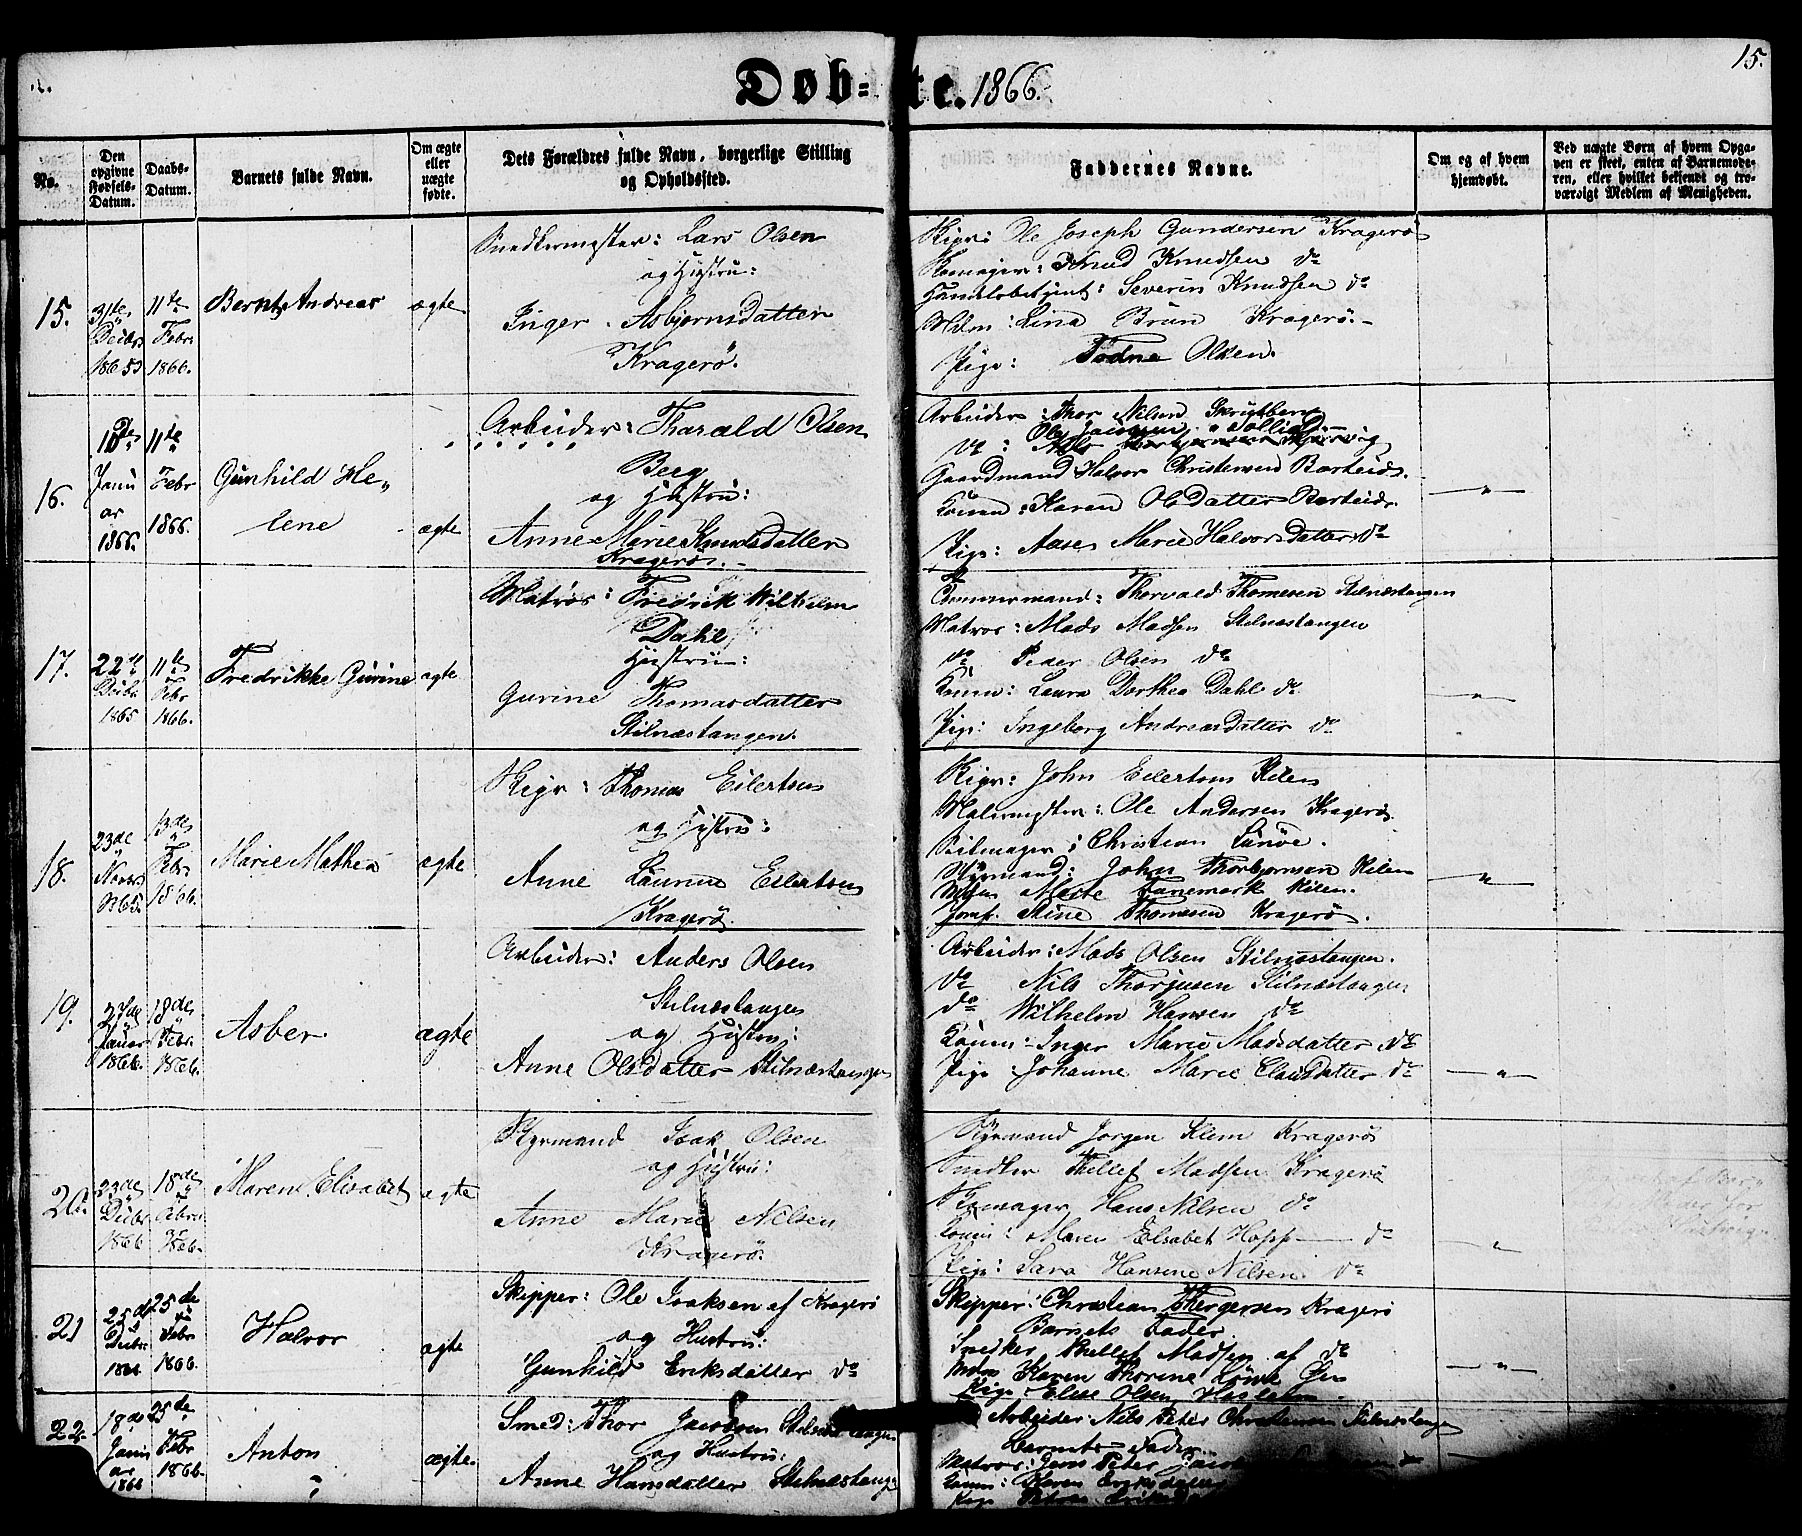 15.
Døb-te. 1866.
No.
Den opgivne Fødsels-Datum.
Daabs-Datum.
Barnets fulde Navn.
Om ægte eller uægte fødte.
Dets Forældres fulde Navn, borgerlige Stilling og Opholdssted.
Faddernes Navne.
Om og af hvem hjemdøbt.
Ved uægte Børn af hvem Opga-
ven er skeet, enten af Barnemode-
ren, eller hvilket bekjendt og tro-
værdigt Medlem af Menigheden.
15.
31te Decbr 1865
11te Febr 1866.
Bernt Andreas
ægte
Snedkermester: Lars Olsen
og Hustru:
Inger Asbjørnsdatter
Kragerö.
Skipr: Ole Joseph Gundersen Kragerö
Knud Knudsen do
Handelsbetjent: Severin Knudsen do
Mdm: Lina Brun Kragerö.
Pige: Todne Olsen.
16.
10de Janu
ar
1866.
11te
Febr
1866.
Gunhild He„
lene
ægte
Arbeider: Tharald Olsen
Berg
og Hustru:
Anne Marie Knudsdatter
Kragerö.
Arbeider: Thor Nilsen
do: Ole
Gaardmand Halvor Christensen Barteid.
Konen: Karen Olsdatter Barteid.
Pige: Aase Marie Halvorsdatter do
— „ —
17.
22de
Decbr
1865
11te
Febr
1866.
Fredrikke Gurine
ægte
Matros: Fredrik Wilhelm
Dahl
Hustru:
Gurine Thomasdatter
Stilnæstangen.
Tømmermand: Thorvald Thomesen Stilnæstangen
Matros: Mads Madsen Stilnæstangen
do Peder Olsen do
Konen: Laura Dorthea Dahl do
Pige: Ingeborg Andreasdatter do
— „ —
18.
23de
Novbr
1865.
13de
Febr
1866.
Marie Mathea
ægte
Skipr: Thomas Eilertsen
og Hustru:
Anne Laurine Eilertsen
Kragerö.
Skipr: John Eilertsen Kilen
Malermester: Ole Andersen Kragerö
Seilmager: Christian
Styrmand: John Thorbjørnsen Kilen
Mdm Marte Kilen.
Jomf. Stine Thomesen Kragerö.
— „ —
19.
27de
Januar
1866.
18de
Febr.
1866.
Asber
ægte
Arbeider: Anders Olsen
Stilnæstangen
og Hustru:
Anne Olsdatter Stilnæstangen
Arbeider: Mads Olsen Stilnæstangen.
do Nils Thorjusen Stilnæstangen
do Wilhelm Hansen do
Konen: Inger Marie Madsdatter do
Pige: Johanne Marie Clausdatter do
— „ —
20.
23de
Decbr
1866
18de
Februar
1866.
Maren Elisabet
ægte
Styrmand Isak Olsen
og Hustru:
Anne Marie Nilsen
Kragerö.
Styrmand Jørgen Klem Kragerö
Snedker Thellef Madsen Kragerö
Hans Nilsen do
Konen: Maren Elsabet Hopp — do
Pige: Sara Hansine Nilsen do
„
21
25de
Decbr.
25de
Febr
1866.
Halvor
ægte
Skipper: Ole Isaksen af Kragerö
og Hustru:
Gunhild Eriksdatter do
Skipper: Christian Kragerö
Barnets Fader.
Snedker Thellef Madsen af do
Mdm Karen Thorine
Pige: Elise Olsen
— „ —
22.
18de
Janu
ar
25de
Febr
1866.
Anton
ægte.
Smed: Thor Jacobsen Stilnæstangen
og Hustru:
Anne Hansdatter Stilnæstangen
Arbeider Nils Peter Christensen Stilnæstangen
Barnets Fader.
Matros: Jens Peter
Konen: Karen
Pige